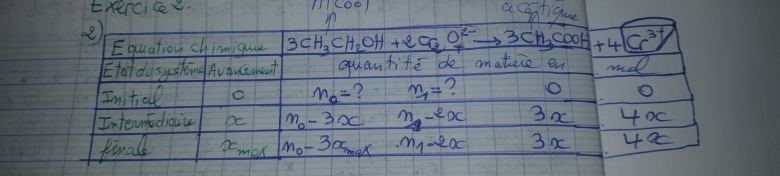 Exercice 2.
alcool acétique
2) Equation chimique 3CH₃CH₂OH + 2Cr₂O₇²⁻ → 3CH₃COOH + 4Cr³⁺
Etat du système Avancement quantité de matière en mol
Initial 0 n₀=? n₁=? 0 0
Intermédiaire x n₀-3x n₁-2x 3x 4x
finale x max n₀-3x max n₁-2x 3x 4x